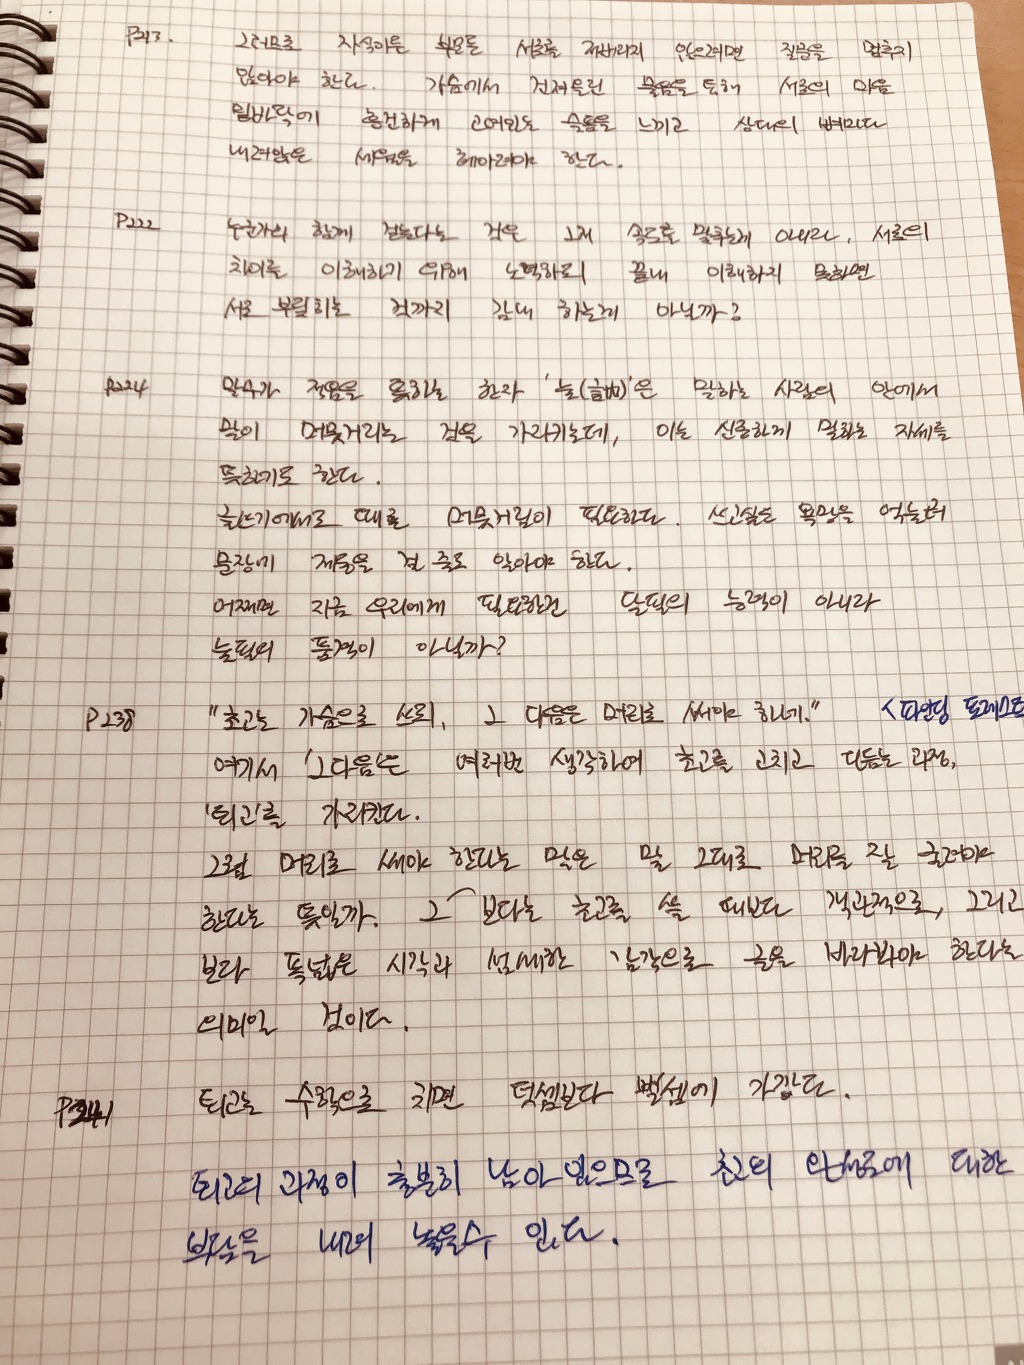 P213. 그러므로 자식이든 부모든 서로를 저버리지 않으려면 질문을 멈추지
않아야 한다. 가슴에서 건져올린 물음을 통해 서로의 마음
밑바닥에 흥건하게 고여있는 슬픔을 느끼고 상대의 뼈마다
내려앉은 세월을 헤아려야 한다.
P222 누군가와 함께 걷는다는 것은 그저 속도를 맞추는게 아니라, 서로의
차이를 이해하기 위해 노력하되 끝내 이해하지 못하면
서로 부딪히는 것까지 감내 하는게 아닐까?
P224 말수가 적음을 뜻하는 한자 '눌(訥)'은 말하는 사람의 안에서
말이 머뭇거리는 것을 가리키는데, 이는 신중하게 말하는 자세를
뜻하기도 한다.
글쓰기에서도 때로 머뭇거림이 필요하다. 쓰고싶은 욕망을 억눌러
문장에 제동을 걸 줄도 알아야 한다.
어쩌면 지금 우리에게 필요한건 달필의 능력이 아니라
눌필의 품격이 아닐까?
P238 "초고는 가슴으로 쓰되, 그 다음은 머리로 써야 하네." <파인딩 포레스트
여기서 '그다음'은 여러번 생각하여 초고를 고치고 다듬는 과정,
'퇴고'를 가리킨다.
그럼 머리로 써야 한다는 말은 말 그대로 머리를 잘 굴려야
한다는 뜻일까. 그 보다는 초고를 쓸 때보다 객관적으로, 그리고
보다 폭넓은 시각과 섬세한 감각으로 글을 바라봐야 한다는
의미일 것이다.
P241 퇴고는 수학으로 치면 덧셈보다 뺄셈에 가깝다.
퇴고의 과정이 충분히 남아 있으므로 초고의 완성도에 대한
부담을 내려 놓을수 있다.